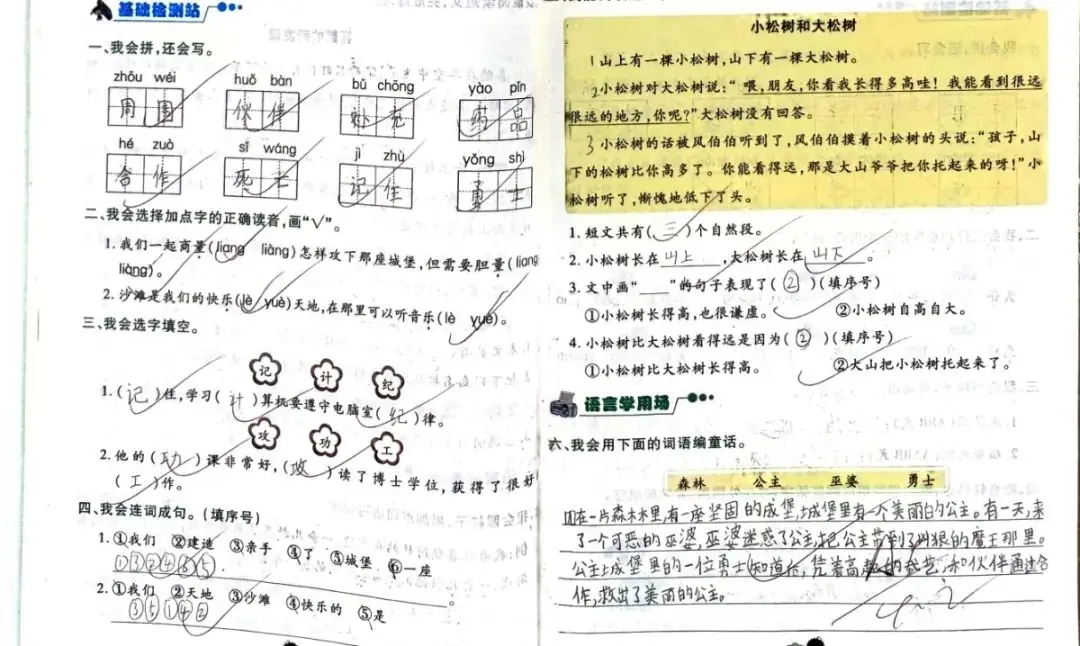 基础检测站
一、我会拼,还会写。
zhōu wéi huǒ bàn bǔ chōng yào pǐn
周围 伙伴 补充 药品
hé zuò sǐ wáng jì zhù yǒng shì
合作 死亡 记住 勇士
二、我会选择加点字的正确读音,画“√”。
1.我们一起商量(liang liàng)怎样攻下那座城堡,但需要胆量(liang
liàng)。
2.沙滩是我们的快乐(lè yuè)天地,在那里可以听音乐(lè yuè)。
三、我会选字填空。
记 计 纪
1.(记)住,学习(计)算机要遵守电脑室(纪)律。
攻 功 工
2.他的(功)课非常好,(攻)读了博士学位,获得了很好
(工)作。
四、我会连词成句。(填序号)
1.①我们 ②建造 ③亲手 ④了 ⑤城堡 ⑥一座
①③②④⑥⑤
2.①我们 ②天地 ③沙滩 ④快乐的 ⑤是
③⑤①④②
小松树和大松树
1山上有一棵小松树,山下有一棵大松树。
2小松树对大松树说:“喂,朋友,你看我长得多高哇!我能看到很远
很远的地方,你呢?”大松树没有回答。
3小松树的话被风伯伯听到了,风伯伯摸着小松树的头说:“孩子,山
下的松树比你高多了。你能看得远,那是大山爷爷把你托起来的呀!”小
松树听了,惭愧地低下了头。
1.短文共有(三)个自然段。
2.小松树长在山上,大松树长在山下。
3.文中画“____”的句子表现了(②)(填序号)
①小松树长得高,也很谦虚。 ②小松树自高自大。
4.小松树比大松树看得远是因为(②)(填序号)
①小松树比大松树长得高。 ②大山把小松树托起来了。
语言学用场
六、我会用下面的词语编童话。
森林 公主 巫婆 勇士
在一片森林里,有一座坚固的成堡,城堡里有一个美丽的公主。有一天,来
了一个可恶的巫婆,巫婆迷惑了公主,把公主带到了凶狠的魔王那里。
公主成堡里的一位勇士知道后,凭着高超的武艺,和伙伴通过合
作,救出了美丽的公主。